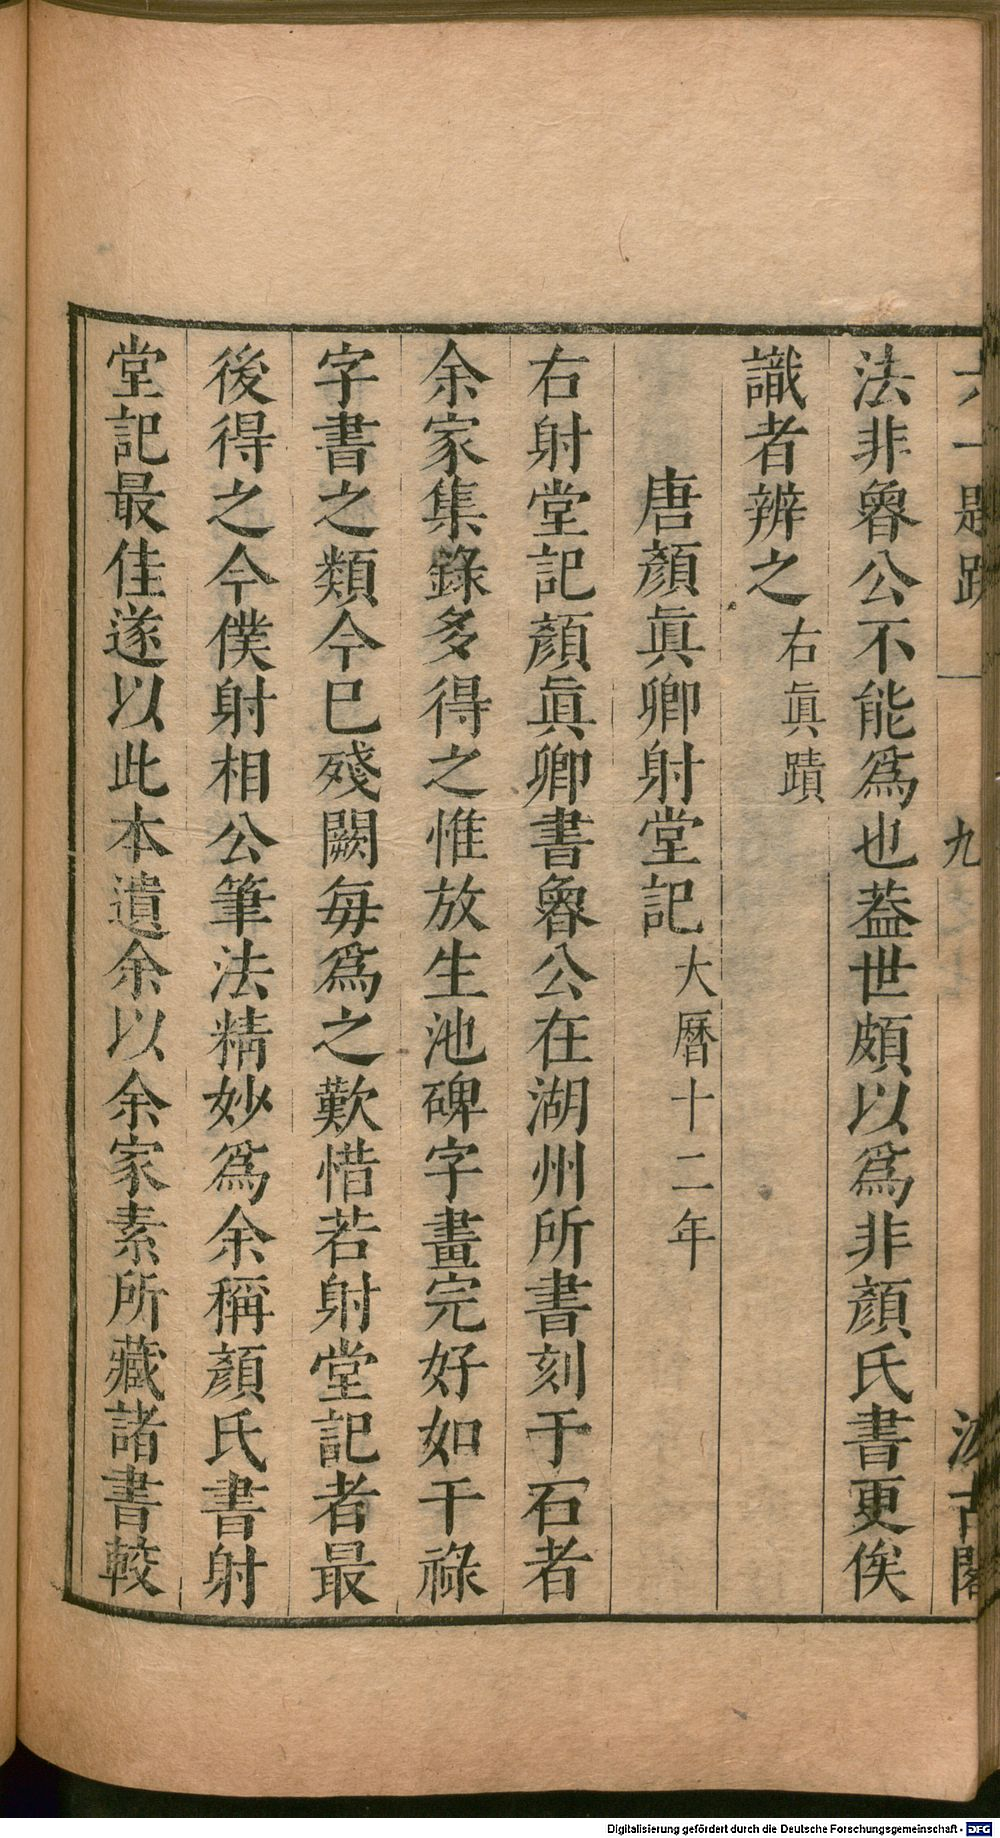 六一題跋 九 汲古閣
法非魯公不能爲也葢世頗以爲非顏氏書更俟
識者辨之右眞蹟
唐顏眞卿射堂記大曆十二年
右射堂記顏眞卿書魯公在湖州所書刻于石者
余家集錄多得之惟放生池碑字畫完好如干祿
字書之類今巳殘闕每爲之歎惜若射堂記者最
後得之今僕射相公筆法精妙爲余稱顏氏書射
堂記最佳遂以此本遺余以余家素所藏諸書較
Digitalisierung gefördert durch die Deutsche Forschungsgemeinschaft - DFG